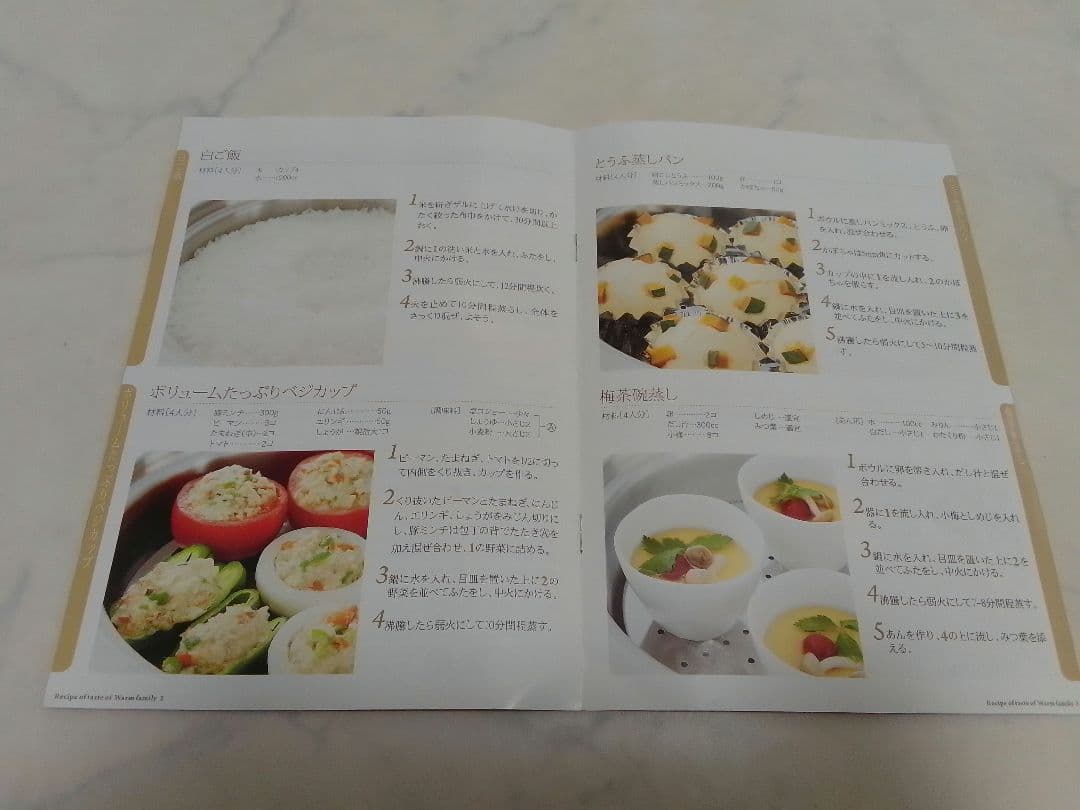 白ご飯
材料〔4人分〕
米……カップ4
水……1200cc
1米を研ぎザルに上げて水けを切り、か
たく絞った布巾をかけて、30分間以上
おく。
2鍋に1の洗い米と水を入れ、ふたをし、
中火にかける。
3沸騰したら弱火にして、12分間程炊く。
4火を止めて10分間程蒸らし、全体を
さっくり混ぜ、よそう。
ボリュームたっぷりベジカップ
材料〔4人分〕
豚ミンチ……300g
ピーマン……3コ
たまねぎ(小)…2コ
トマト……2コ
にんじん……50g
エリンギ……50g
しょうが…親指大1コ
〔調味料〕
塩コショー…少々
しょうゆ…小さじ2
小麦粉…小さじ2
Ⓐ
1ピーマン、たまねぎ、トマトを1/2に切っ
て内側をくり抜き、カップを作る。
2くり抜いたピーマンとたまねぎ、にんじ
ん、エリンギ、しょうがをみじん切りに
し、豚ミンチは包丁の背でたたきⒶを
加え混ぜ合わせ、1の野菜に詰める。
3鍋に水を入れ、目皿を置いた上に2の
野菜を並べてふたをし、中火にかける。
4沸騰したら弱火にして10分間程蒸す。
ボリュームたっぷりベジカップ
Recipe of taste of Warm family 2
とうふ蒸しパン
材料〔4人分〕
絹ごしとうふ……100g
蒸しパンミックス…200g
卵……1コ
かぼちゃ…50g
1ボウルに蒸しパンミックス、とうふ、卵
を入れ、混ぜ合わせる。
2かぼちゃは5mm角にカットする。
3カップの中に1を流し入れ、2のかぼ
ちゃを散らす。
4鍋に水を入れ、目皿を置いた上に3を
並べてふたをし、中火にかける。
5沸騰したら弱火にして5〜10分間程蒸
す。
梅茶碗蒸し
材料〔4人分〕
卵……2コ
だし汁…300cc
小梅……8コ
しめじ…適宜
みつ葉…適宜
〔あん用〕
水……100cc
白だし…小さじ1
みりん…小さじ1
かたくり粉…小さじ1
1ボウルに卵を溶き入れ、だし汁と混ぜ
合わせる。
2器に1を流し入れ、小梅としめじを入れ
る。
3鍋に水を入れ、目皿を置いた上に2を
並べてふたをし、中火にかける。
4沸騰したら弱火にして7〜8分間程蒸す。
5あんを作り、4の上に流し、みつ葉を添
える。
Recipe of taste of Warm family 3